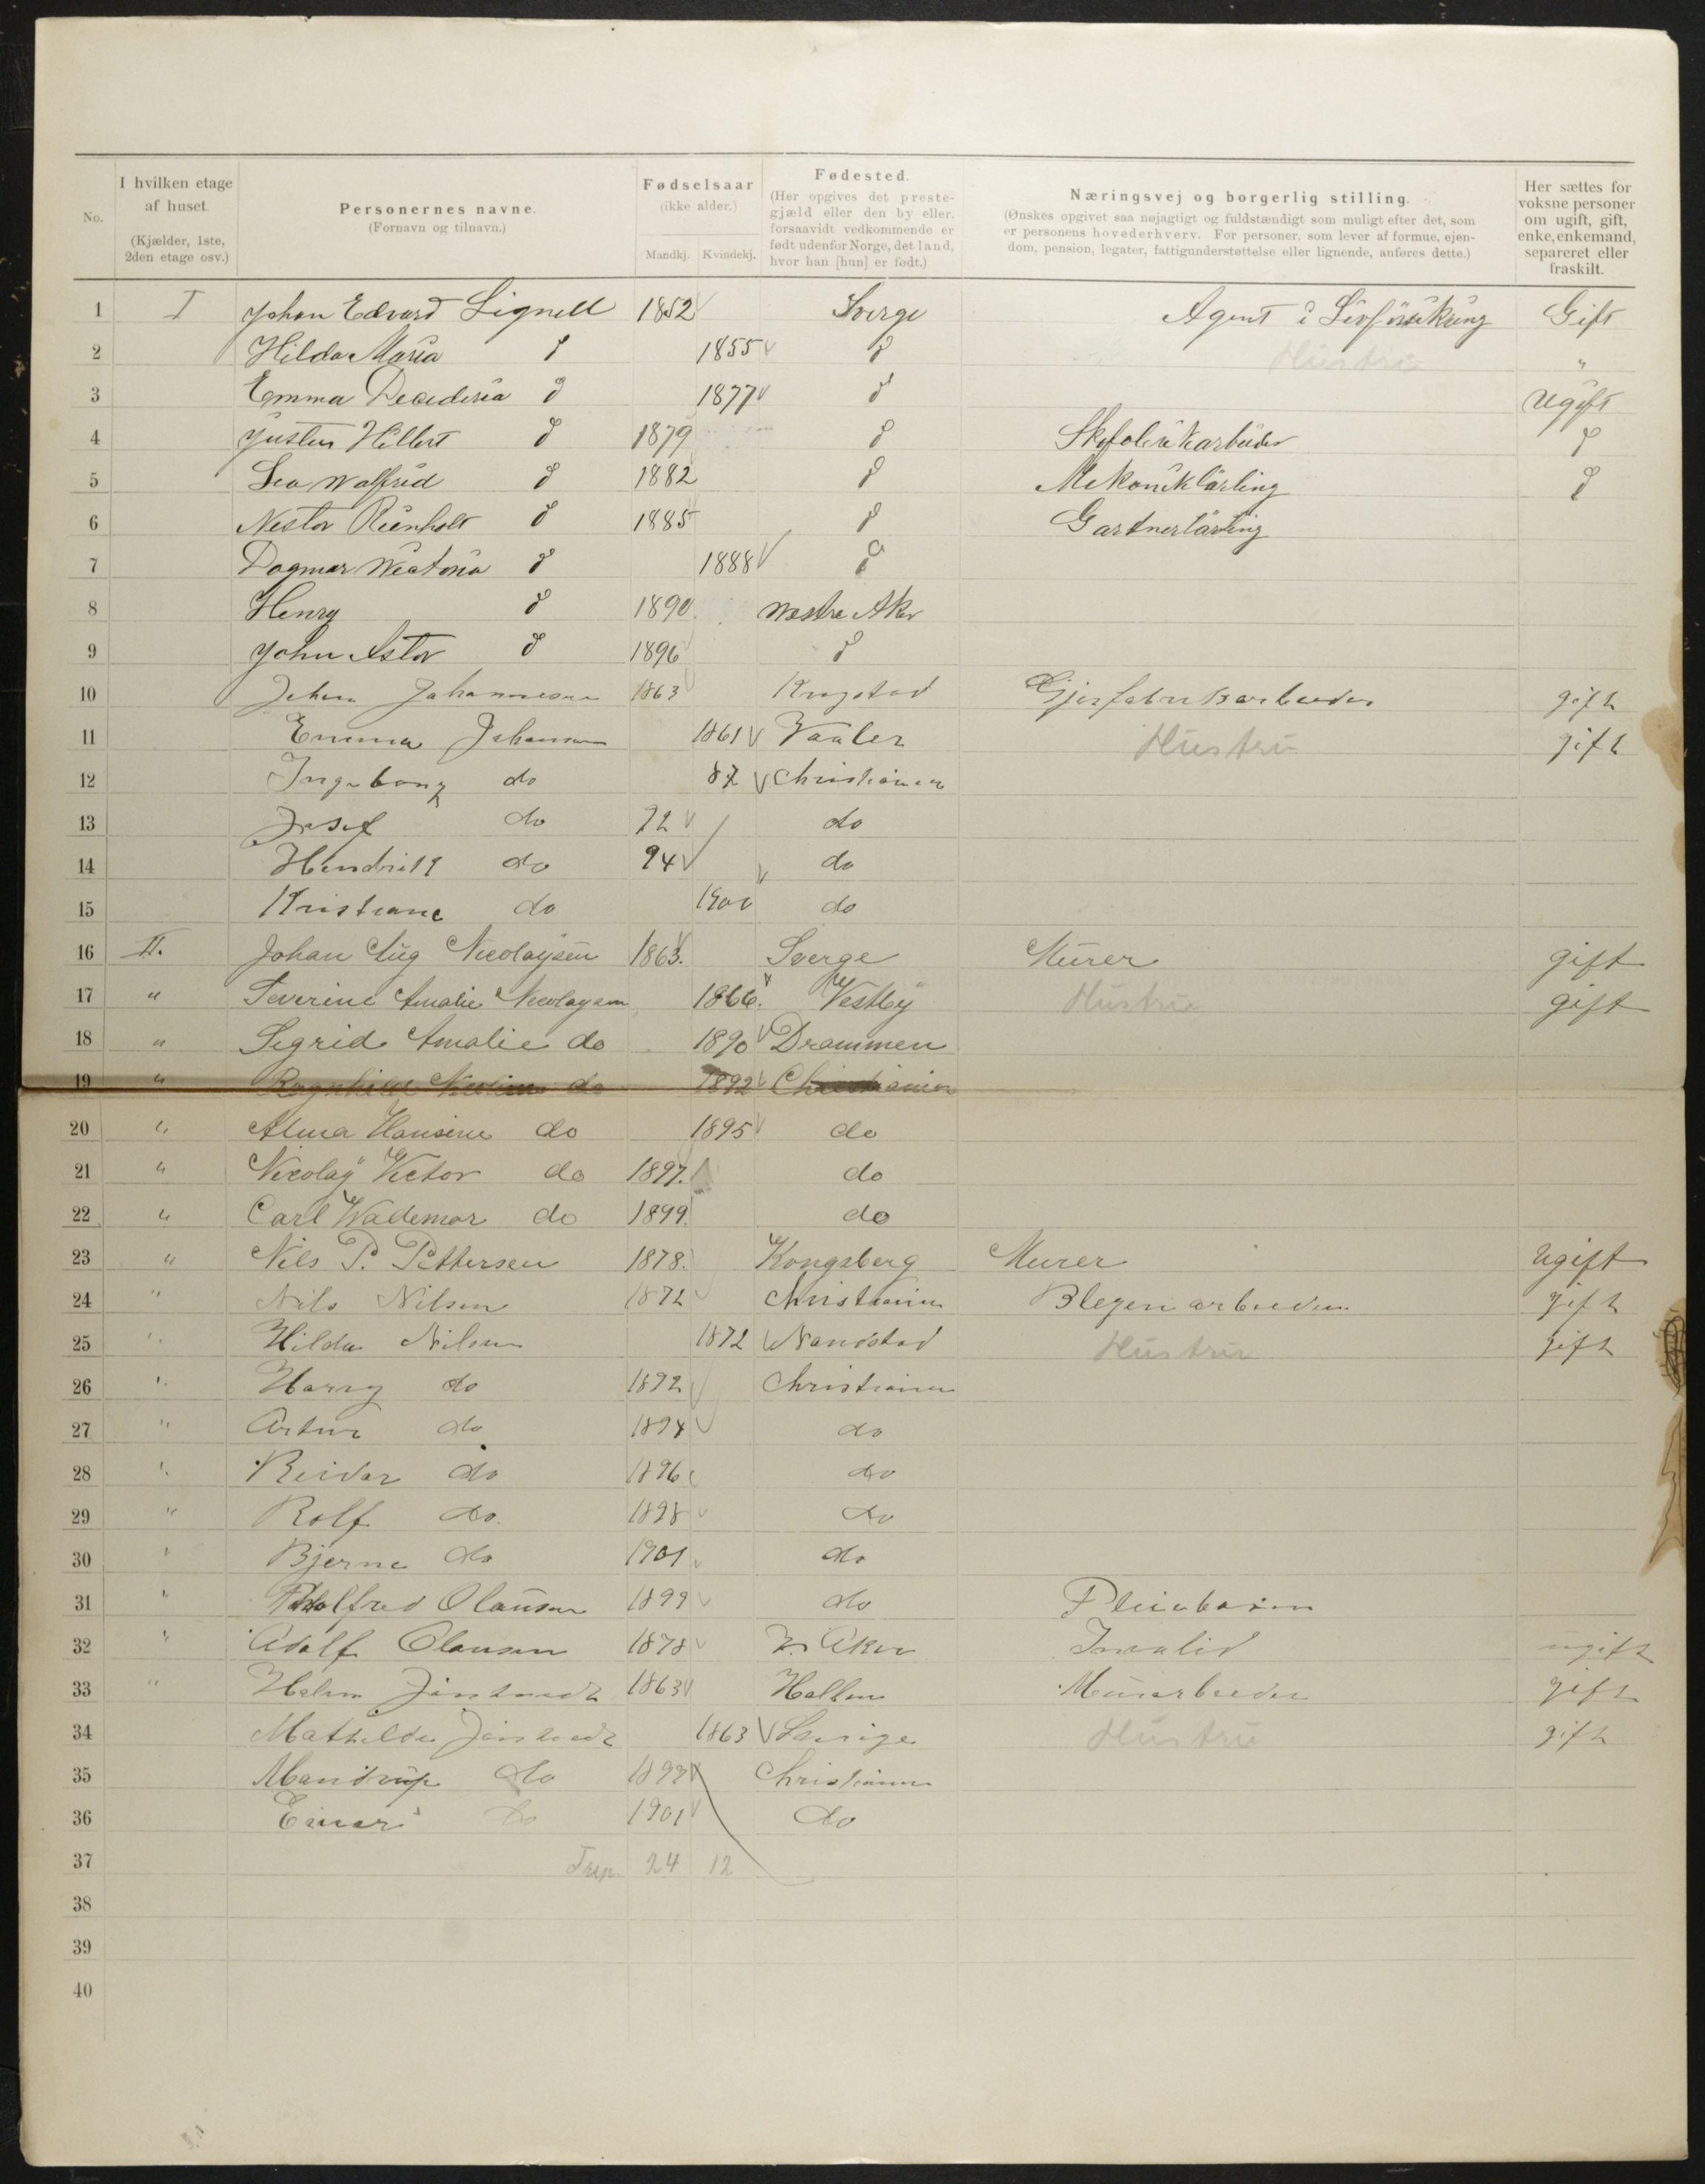 No.
I hvilken etage af huset. (Kjælder, 1ste, 2den etage osv.)
Personernes navne. (Fornavn og tilnavn.)
Fødselsaar (ikke alder.) Mandkj. Kvindekj.
Fødested. (Her opgives det prestegjæld eller den by eller, forsaavidt vedkommende er født udenfor Norge, det land, hvor han [hun] er født.)
Næringsvej og borgerlig stilling. (Ønskes opgivet saa nøjagtigt og fuldstændigt som muligt efter det, som er personens hovederhverv. For personer, som lever af formue, ejendom, pension, legater, fattigunderstøttelse eller lignende, anføres dette.)
Her sættes for voksne personer om ugift, gift, enke, enkemand, separeret eller fraskilt.
1 I Johan Edvard Lignell 1852 Sverge Agent i Livförsikring Gift
2 Hilda Maria d 1855 d Hustru "
3 Emma Desideria d 1877 d Ugift
4 Justus Hilbert d 1879 d Skofabrikarbeider d
5 Leo Walfrid d 1882 d Mekaniklärling d
6 Nestor Reinholt d 1885 d Gartnerlärling
7 Dagmar d 1888 d
8 Henry d 1890 Westre Aker
9 John Astor d 1896 d
10 Johan Johannesen 1863 Krogstad gift
11 Emma Johansen 1861 Vaaler Hustru gift
12 Ingeborg do 87 Christiania
13 Josef do 92 do
14 Hendrik do 94 do
15 Kristiane do 1900 do
16 II. Johan Aug Nicolaysen 1863. Sverge Murer gift
17 " Severine Amalie Nicolaysen 1866. Vestby Hustru gift
18 " Sigrid Amalie do 1890 Drammen
19 " Ragnhild do 1892 Christiania
20 " Alma Hansine do 1895 do
21 " Nicolay Victor do 1897. do
22 " Carl Wademar do 1899. do
23 " Nils P. Pettersen 1878. Kongsberg Murer Ugift
24 " Nils Nilsen 1872 Christiania gift
25 " Hilda Nilsen 1872 Nandstad Hustru gift
26 " Harry do 1892 Christiania
27 " Artur do 1894 do
28 " Reidar do 1896 do
29 " Rolf do. 1898 do
30 " Bjerne do 1901 do
31 " Olausen 1899 do Pleiebarn
32 " Adolf Olausen 1878 V. Aker Invalid ugift
33 " 1863 Murarbeider gift
34 Mathilde 1863 Sverige Hustru gift
35 Mandrup do 1899 Christiania
36 Einar do 1901 do
37 Trsp. 24 12
38
39
40